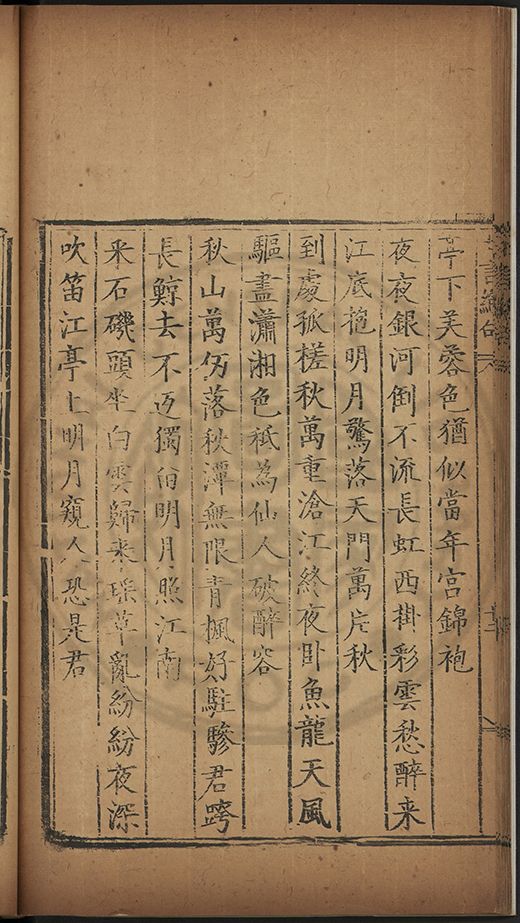 亭下芙蓉色猶似當年宫錦袍
夜夜銀河倒不流長虹西掛彩雲愁醉来
江底抱明月驚落天門萬片秋
到處孤槎秋萬重滄江終夜卧魚龍天風
驅盡瀟湘色秪為仙人破醉容
秋山萬仞落秋潭無限青楓好駐驂君跨
長鯨去不返獨留明月照江南
采石磯頭坐白雲歸来瑶草亂紛紛夜深
吹笛江亭上明月窺人恐是君